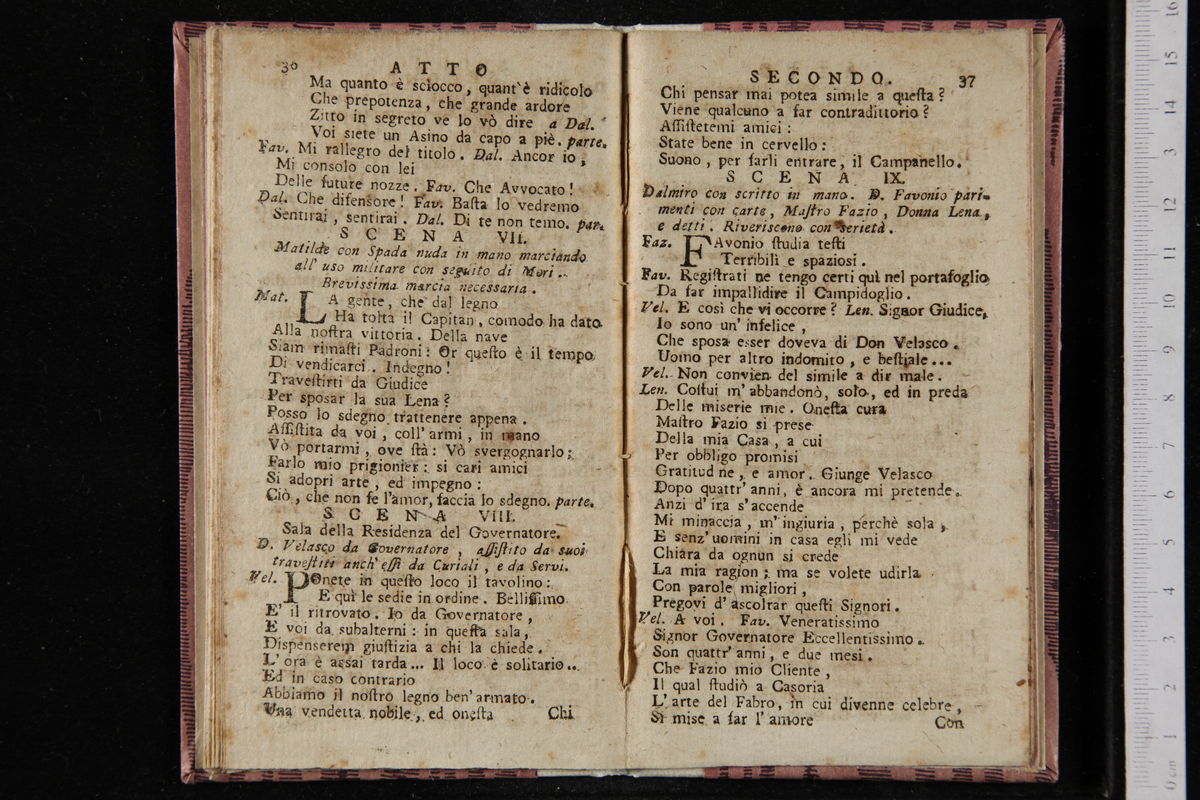 30 ATTO
Ma quanto è sciocco, quant'è ridicolo
Che prepotenza, che grande ardore
Zitto in segreto ve lo vò dire a Dal.
Voi siete un Asino da capo a piè. parte.
Fav. Mi rallegro del titolo. Dal. Ancor io,
Mi consolo con lei
Delle future nozze. Fav. Che Avvocato!
Dal. Che difensore! Fav. Baſta lo vedremo
Sentirai, sentirai. Dal. Di te non temo. par.
SCENA VII.
Matilde con Spada nuda in mano marciando
all' uso militare con seguito di Mori.
Brevissima marcia necessaria.
Mat. LA gente, che dal legno
Ha tolta il Capitan, comodo ha dato
Alla noſtra vittoria. Della nave
Siam rimaſti Padroni: Or queſto è il tempo
Di vendicarci. Indegno!
Traveſtirti da Giudice
Per sposar la sua Lena?
Posso lo sdegno trattenere appena.
Aſſiſtita da voi, coll' armi, in mano
Vò portarmi, ove ſtà: Vò svergognarlo;
Farlo mio prigionier: si cari amici
Si adopri arte, ed impegno:
Ciò, che non fe l'amor, faccia lo sdegno. parte.
SCENA VIII.
Sala della Residenza del Governatore.
D. Velasco da Governatore, aſſiſtito da suoi
traveſtiti anch' eſſi da Curiali, e da Servi.
Vel. POnete in queſto loco il tavolino:
E quì le sedie in ordine. Belliſſimo
E' il ritrovato. Io da Governatore,
E voi da subalterni: in queſta sala,
Dispenserem giuſtizia a chi la chiede.
L' ora è assai tarda... Il loco è solitario..
Ed in caso contrario
Abbiamo il noſtro legno ben' armato.
Una vendetta nobile, ed oneſta Chi
SECONDO. 37
Chi pensar mai potea simile a queſta?
Viene qualcuno a far contradittorio?
Aſſiſtetemi amici:
State bene in cervello:
Suono, per farli entrare, il Campanello.
SCENA IX.
Dalmiro con scritto in mano. D. Favonio pari-
menti con carte, Maſtro Fazio, Donna Lena,
e detti. Riveriscono con serietà.
Faz. FAvonio ſtudia teſti
Terribili e spaziosi.
Fav. Regiſtrati ne tengo certi quì nel portafoglio
Da far impallidire il Campidoglio.
Vel. E così che vi occorre? Len. Signor Giudice,
Io sono un' infelice,
Che sposa esser doveva di Don Velasco.
Uomo per altro indomito, e beſtiale...
Vel. Non convien del simile a dir male.
Len. Coſtui m' abbandonò, sola, ed in preda
Delle miserie mie. Oneſta cura
Maſtro Fazio si prese
Della mia Casa, a cui
Per obbligo promisi
Gratitud ne, e amor. Giunge Velasco
Dopo quattr' anni, è ancora mi pretende.
Anzi d' ira s' accende
Mi minaccia, m' ingiuria, perchè sola,
E senz' uomini in casa egli mi vede
Chiara da ognun si crede
La mia ragion; ma se volete udirla
Con parole migliori,
Pregovi d' ascolrar queſti Signori.
Vel. A voi. Fav. Veneratissimo
Signor Governatore Eccellentissimo.
Son quattr' anni, e due mesi.
Che Fazio mio Cliente,
Il qual ſtudiò a Casoria
L' arte del Fabro, in cui divenne celebre,
Si mise a far l' amore Con